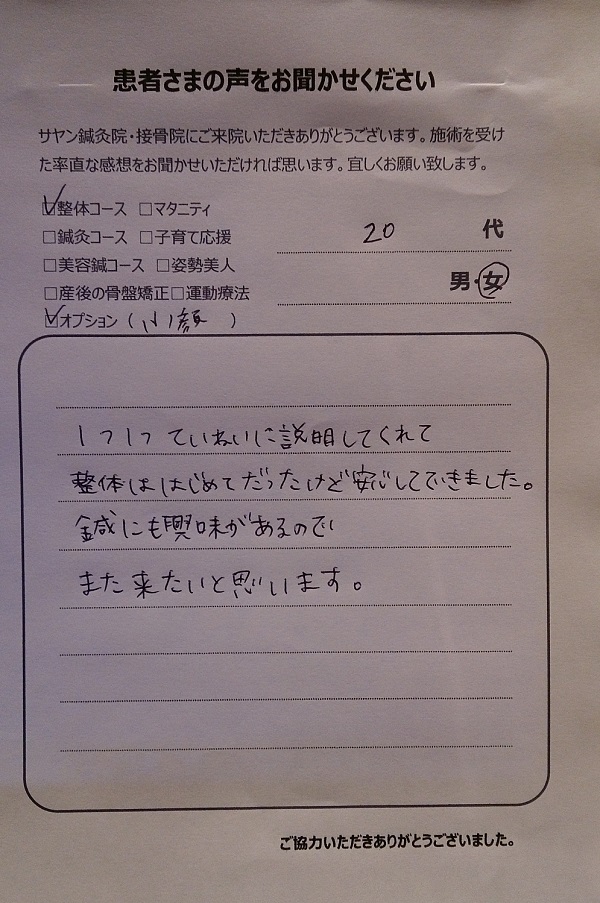 患者さまの声をお聞かせください
サヤン鍼灸院・接骨院にご来院いただきありがとうございます。施術を受け
た率直な感想をお聞かせいただければ思います。宜しくお願い致します。
☑整体コース □マタニティ
□鍼灸コース □子育て応援
□美容鍼コース □姿勢美人
□産後の骨盤矯正□運動療法
☑オプション(小顔)
20 代
男・女
1つ1つていねいに説明してくれて
整体ははじめてだったけど安心してできました。
鍼にも興味があるので
また来たいと思います。
ご協力いただきありがとうございました。